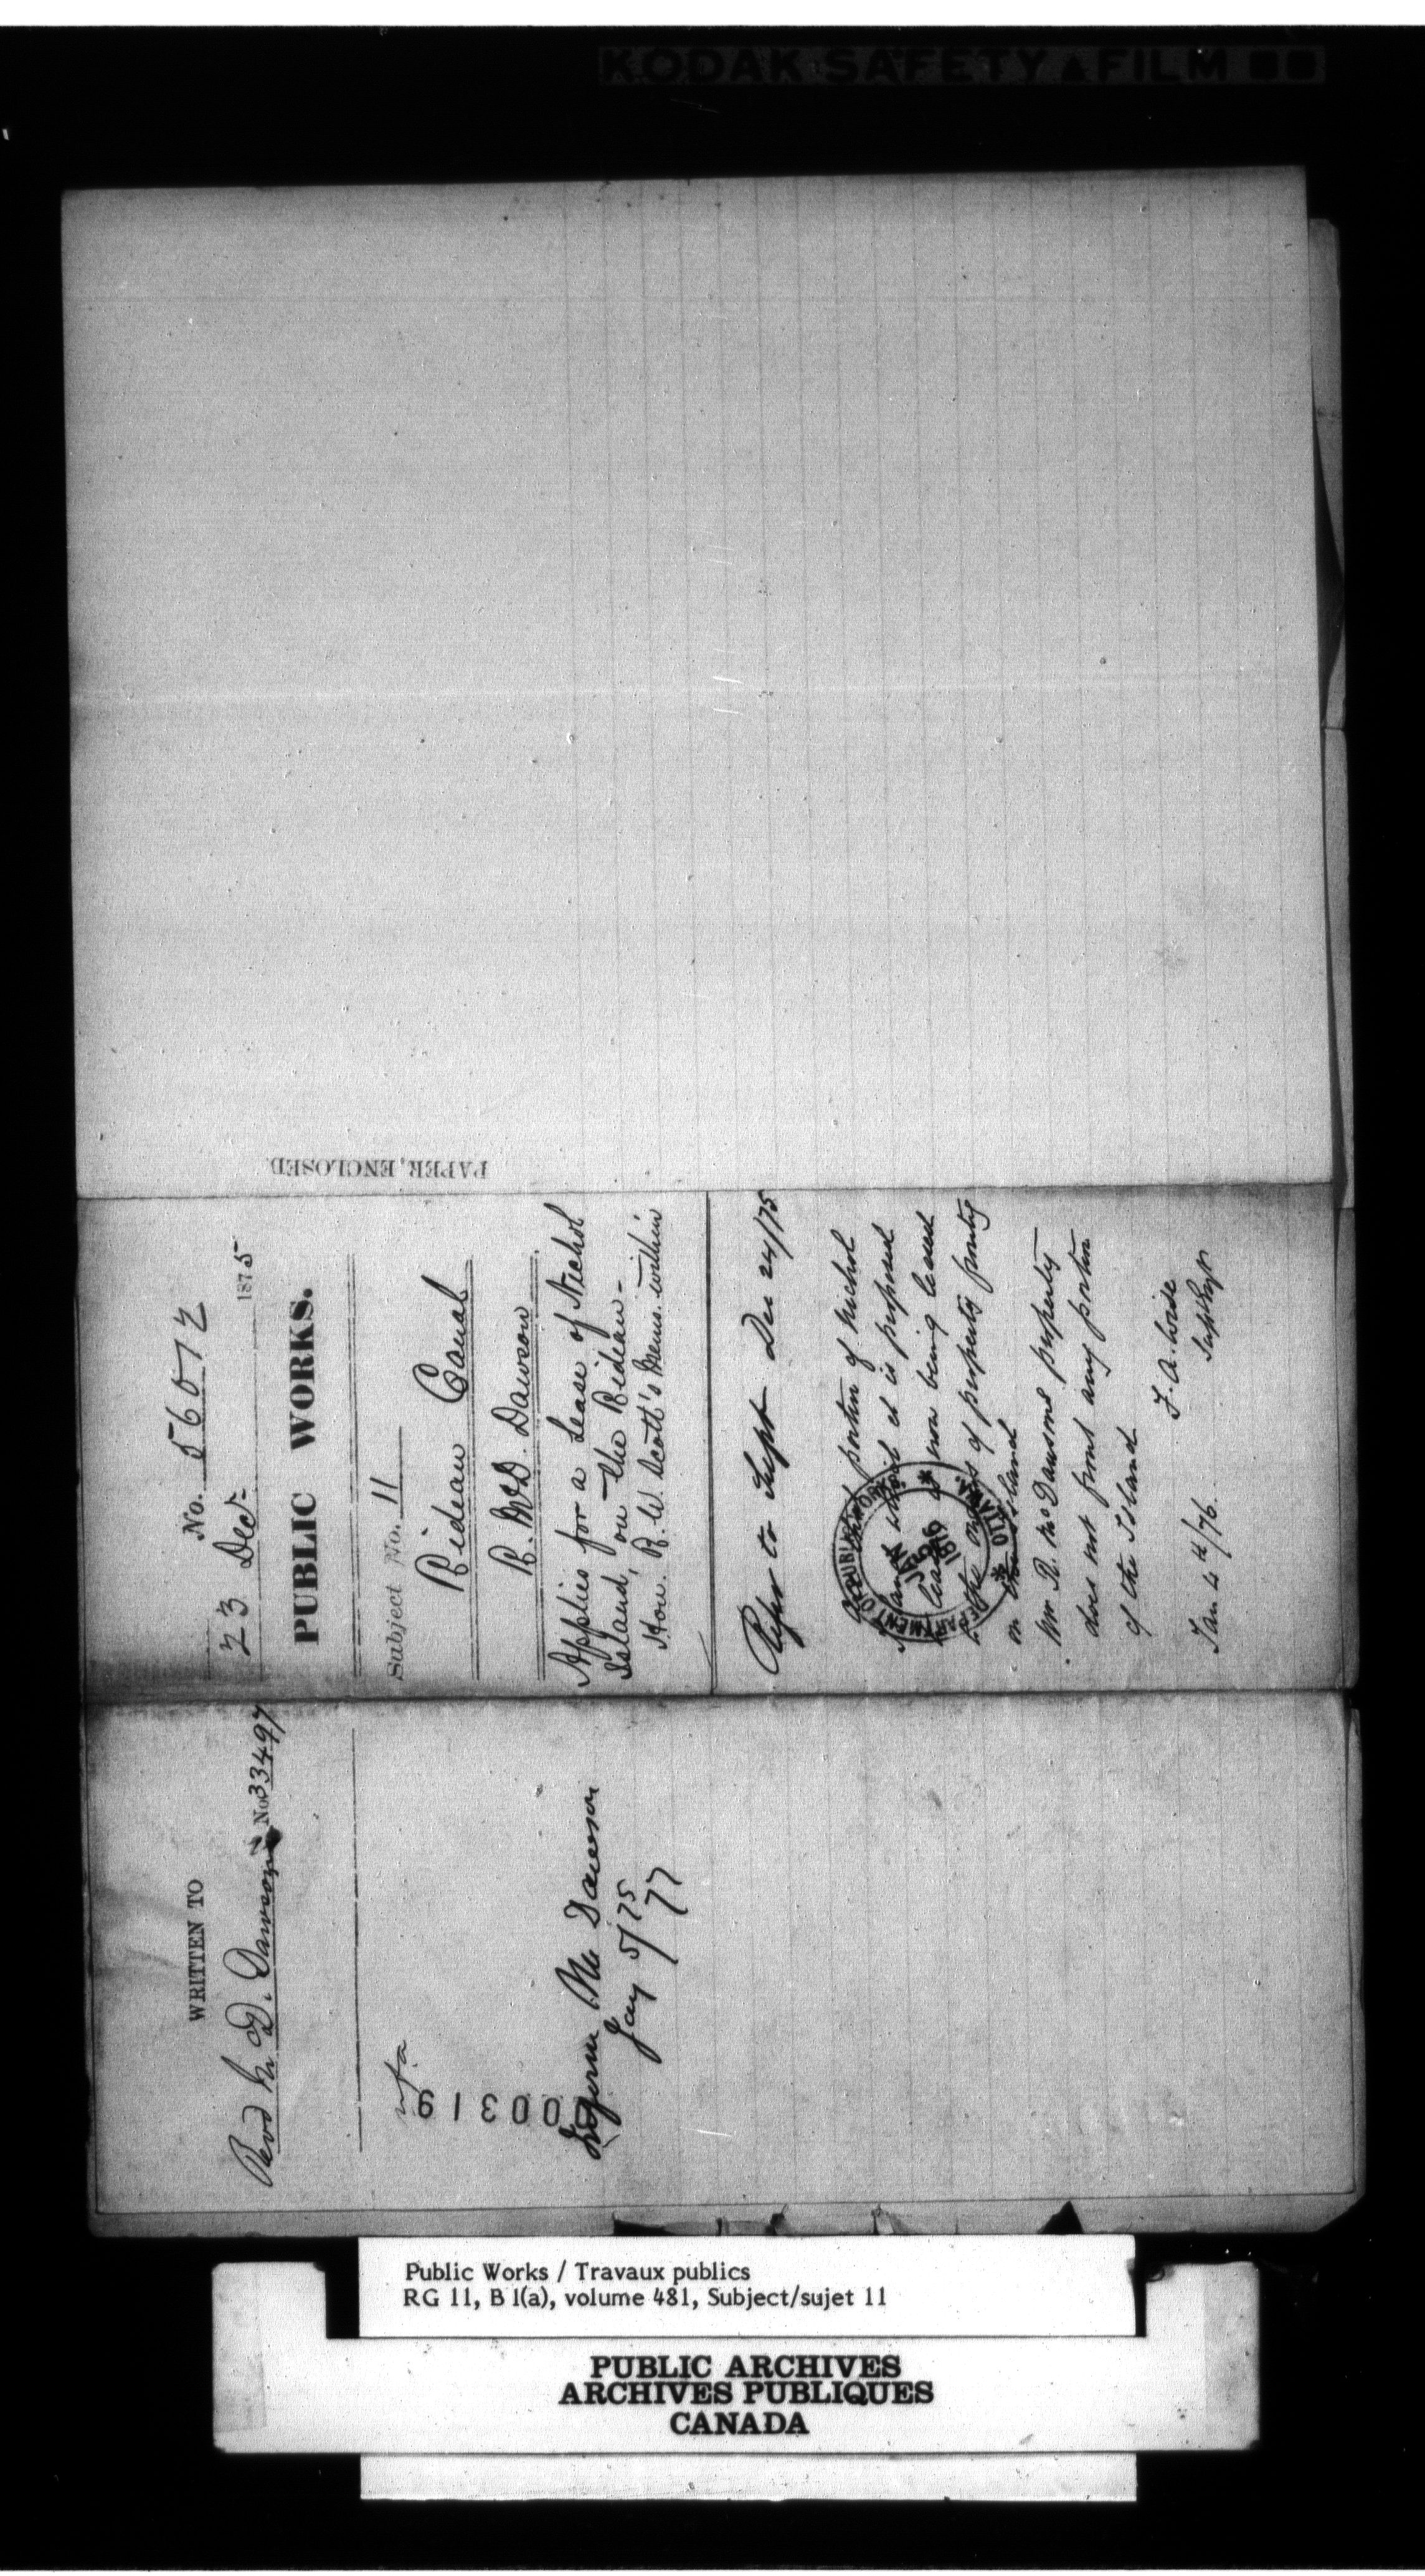 KODAK SAFETY FILM
PAPER, ENCLOSED
No. 56072
23 Decr 1875
PUBLIC WORKS.
Subject No. 11
Rideau Canal
R. McD. Dawson
Applies for a Lease of Nichol
Island, on the Rideau -
Hon. R. W. Scott's Memo. within
Refer to Supt Dec 24/75
portion of Nichol
Island which it is proposed
to lease is now being leased
to the owners of property fronting
on the Island
Mr. R. McDawsons property
does not front any portion
of the Island
F. A. Wise
Jan 4th/76.
DEPARTMENT OF PUBLIC WORKS
JAN 5 1876
OTTAWA.
WRITTEN TO
Revd M. D. Dawson No 33497
000319
Inform Mr Dawson
Jany 5/75
77
Public Works / Travaux publics
RG 11, B 1(a), volume 481, Subject/sujet 11
PUBLIC ARCHIVES
ARCHIVES PUBLIQUES
CANADA